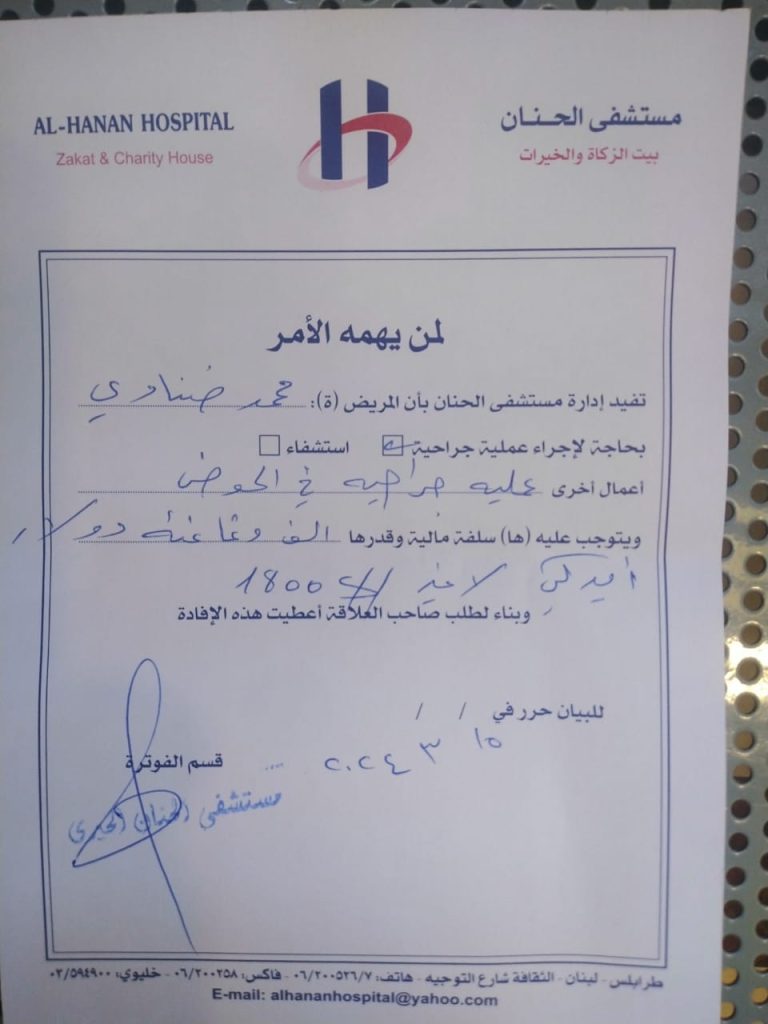 AL-HANAN HOSPITAL
Zakat & Charity House
مستشفى الحنان
بيت الزكاة والخيرات
لمن يهمه الأمر
تفيد إدارة مستشفى الحنان بأن المريض (ة): محمد ضناوي
بحاجة لإجراء عملية جراحية استشفاء
أعمال أخرى عمليه جراحيه في الحوض
ويتوجب عليه (ها) سلفة مالية وقدرها الف وثمانمئة دولار
أميركي لا غير 1800
وبناء لطلب صاحب العلاقة أعطيت هذه الإفادة
للبيان حرر في / /
١٥ ٣ ٢٠٢٤
قسم الفوترة
مستشفى الحنان الخيري
طرابلس - لبنان - الثقافة شارع التوجيه - هاتف: ٠٦/٢٠٠٥٢٦/٧ - فاكس: ٠٦/٢٠٠٢٥٨ - خليوي: ٠٣/٥٩٤٩٠٠
E-mail: alhananhospital@yahoo.com